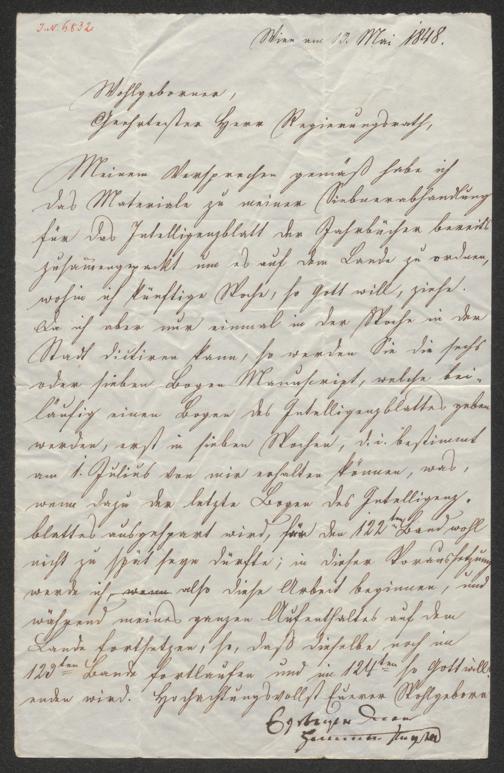 I.N. 6832
Wien am 13. Mai 1848.
Wohlgeborner,
Geehrtester Herr Regierungsrath,
Meinem Versprechen gemäß habe ich
das Materiale zu meiner Siebnerabhandlung
für das Intelligenzblatt der Jahrbücher bereits
zusammengepackt um es auf dem Lande zu ordnen,
wohin ich künftige Woche, so Gott will, ziehe.
Da ich aber nur einmal in der Woche in der
Stadt dictiren kann, so werden Sie die sechs
oder sieben Bogen Manuscript, welche bei-
läufig einen Bogen des Intelligenzblattes geben
werden, erst in sieben Wochen, d.i. bestimmt
am 1. Julius von mir erhalten können, was,
wenn dazu der letzte Bogen des Intelligenz-
blattes ausgespart wird, für den 122ten Band wohl
nicht zu spät seyn dürfte; in dieser Voraussetzung
werde ich, wenn also diese Arbeit beginnen, und
während meines ganzen Aufenthaltes auf dem
Lande fortsetzen, so, daß dieselbe noch im
123ten Bande fortlaufen und im 124ten so Gott will
enden wird. Hochachtungsvollst Euerer Wohlgeborn
Hammer Purgstall